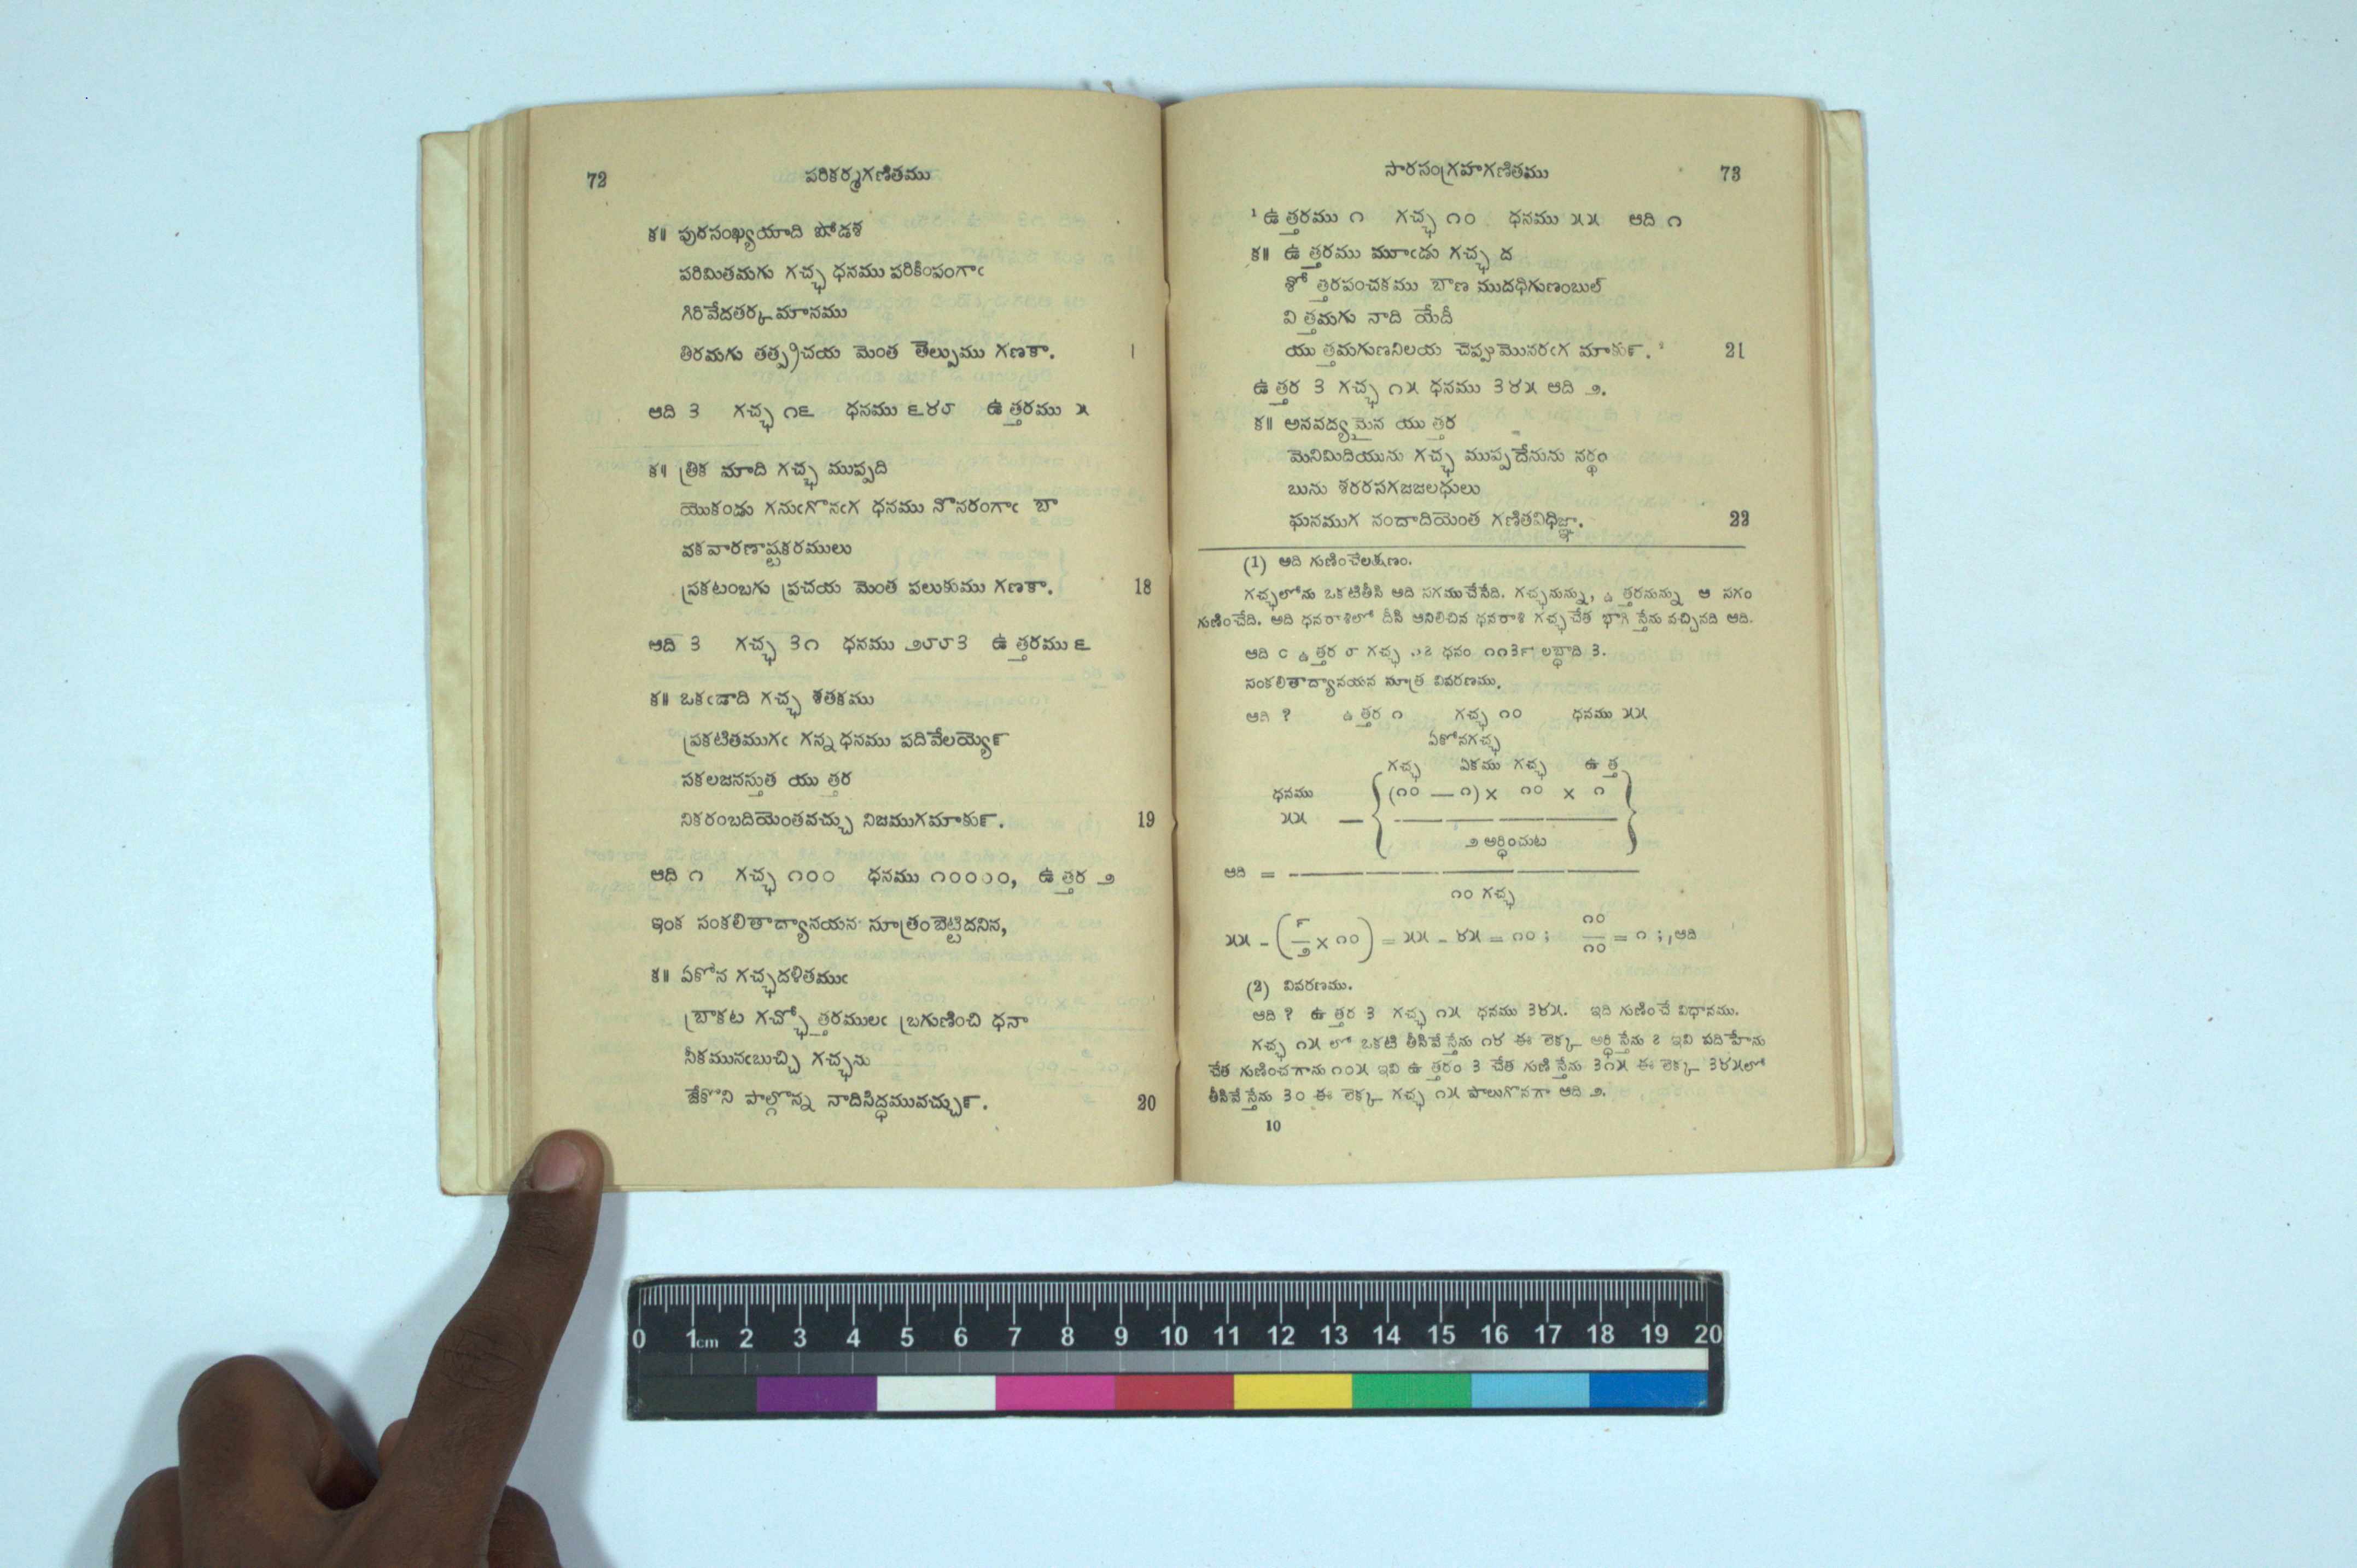 72 పరికర్మగణితము
క॥ పురసంఖ్యయాది షోడశ
పరిమితమగు గచ్ఛ ధనము పరికింపంగాఁ
గిరివేదతర్క మానము
తిరమగు తత్ప్రచయ మెంత తెల్పుము గణకా.
ఆది ౩ గచ్ఛ ౧౬ ధనము ౬౪౮ ఉత్తరము ౫
క॥ త్రిక మాది గచ్ఛ ముప్పది
యొకండు గనుఁగొనఁగ ధనము నొనరంగాఁ బా
వకవారణాష్టకరములు
ప్రకటంబగు ప్రచయ మెంత పలుకుము గణకా. 18
ఆది ౩ గచ్ఛ ౩౧ ధనము ౨౮౮౩ ఉత్తరము ౬
క॥ ఒకఁడాది గచ్ఛ శతకము
ప్రకటితముగఁ గన్న ధనము పదివేలయ్యెన్
సకలజనస్తుత యుత్తర
నికరంబదియెంతవచ్చు నిజముగమాకున్. 19
ఆది ౧ గచ్ఛ ౧౦౦ ధనము ౧౦౦౦౦, ఉత్తర ౨
ఇంక సంకలితాద్యానయన సూత్రంబెట్టిదనిన,
క॥ ఏకోన గచ్ఛదళితముఁ
బ్రాకట గచ్ఛోత్తరములఁ బ్రగుణించి ధనా
నీకమునఁబుచ్చి గచ్ఛను
జేకొని పాల్గొన్న నాదిసిద్ధమువచ్చున్. 20
సారసంగ్రహగణితము 73
¹ ఉత్తరము ౧ గచ్ఛ ౧౦ ధనము ౫౫ ఆది ౧
క॥ ఉత్తరము మూఁడు గచ్ఛ ద
శోత్తరపంచకము బాణ ముదధిగుణంబుల్
విత్తమగు నాది యేదీ
యుత్తమగుణనిలయ చెప్పుమొనరఁగ మాకున్. ² 21
ఉత్తర ౩ గచ్ఛ ౧౫ ధనము ౩౪౫ ఆది ౨.
క॥ అనవద్యమైన యుత్తర
మెనిమిదియును గచ్ఛ ముప్పదేనును నర్థం
బును శరరసగజజలధులు
ఘనముగ నందాదియెంత గణితవిధిజ్ఞా. 22
(1) ఆది గుణించేలక్షణం.
గచ్ఛలోను ఒకటితీసి అది సగముచేసేది. గచ్ఛనున్ను, ఉత్తరనున్ను ఆ సగం
గుణించేది. అది ధనరాశిలో దీసి ఆనిలిచిన ధనరాశి గచ్ఛచేత భాగిస్తేను వచ్చినది ఆది.
ఆది ఉత్తర ౮ గచ్ఛ ధనం ౧౧౩౯ లబ్ధాది ౩.
సంకలితాద్యానయన సూత్ర వివరణము.
ఆది ? ఉత్తర ౧ గచ్ఛ ౧౦ ధనము ౫౫
ఏకోనగచ్ఛ
గచ్ఛ ఏకము గచ్ఛ ఉత్త
ధనము (౧౦ — ౧) × ౧౦ × ౧
౫౫ —
౨ అర్ధించుట
ఆది =
౧౦ గచ్ఛ
౫౫ - (౯/౨ × ౧౦) = ౫౫ - ౪౫ = ౧౦ ; ౧౦/౧౦ = ౧ ;, ఆది
(2) వివరణము.
ఆది ? ఉత్తర ౩ గచ్ఛ ౧౫ ధనము ౩౪౫. ఇది గుణించే విధానము.
గచ్ఛ ౧౫ లో ఒకటి తీసివేస్తేను ౧౪ ఈ లెక్క అర్ధిస్తేను ౭ ఇవి పదిహేను
చేత గుణించగాను ౧౦౫ ఇవి ఉత్తరం ౩ చేత గుణిస్తేను ౩౧౫ ఈ లెక్క ౩౪౫లో
తీసివేస్తేను ౩౦ ఈ లెక్క గచ్ఛ ౧౫ పాలుగొనగా ఆది ౨.
10
0 1cm 2 3 4 5 6 7 8 9 10 11 12 13 14 15 16 17 18 19 20